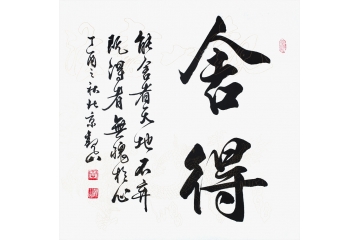 舍得
能舍者天地不弃
既得者無愧於心
丁酉之秋北京